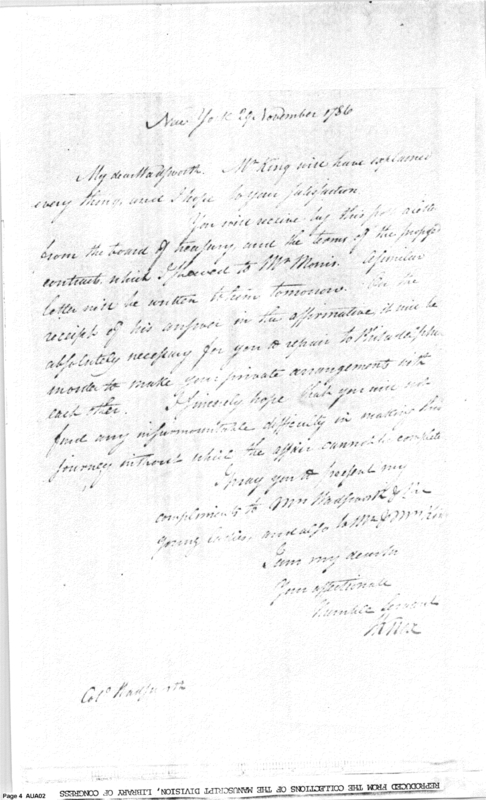 New York 29 November 1786
My dear Wadsworth. Mr King will have explained
every thing, and I hope to your satisfaction.
You will receive by this post a letter
from the board of treasury, and the terms of the proposed
contract, which I shewed to Mr Morris. A similar
letter will be written to him tomorrow. On the
receipt of his answer in the affirmative it will be
absolutely necessary for you to repair to Philadelphia
in order to make your private arrangements with
each other. I sincerely hope that you will not
find any insurmountable difficulty in making this
journey without which the affair cannot be complete
I pray you to present my
compliments to Mrs Wadsworth & the
young ladies, and also to Mr & Mrs
I am my dear Sir
Your affectionate
humble Servant
HKnox
Colo Wadsworth
Page 4 AUA02
REPRODUCED FROM THE COLLECTIONS OF THE MANUSCRIPT DIVISION, LIBRARY OF CONGRESS